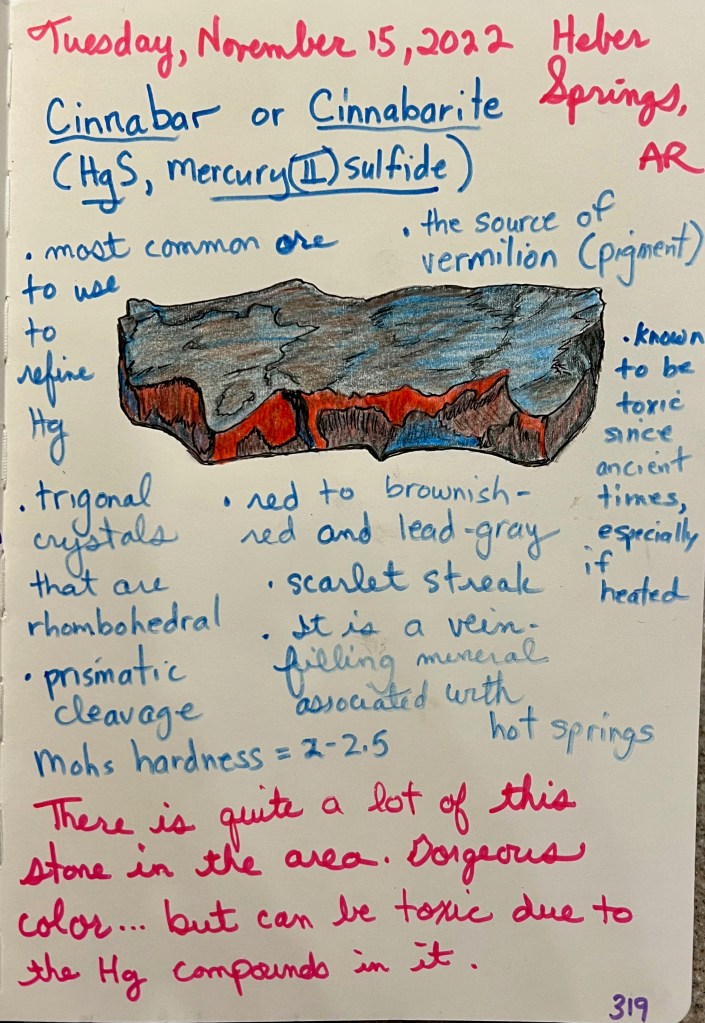 Tuesday, November 15, 2022 Heber
Springs,
AR
Cinnabar or Cinnabarite
(HgS, mercury(II) sulfide)
• most common ore
to use
to
refine
Hg
• the source of
vermilion (pigment)
• known
to be
toxic
since
ancient
times,
especially
if
heated
• trigonal
crystals
that are
rhombohedral
• prismatic
cleavage
• red to brownish-
red and lead-gray
• scarlet streak
• It is a vein-
filling mineral
associated with
hot springs
Mohs hardness = 2-2.5
There is quite a lot of this
stone in the area. Gorgeous
color... but can be toxic due to
the Hg compounds in it.
319